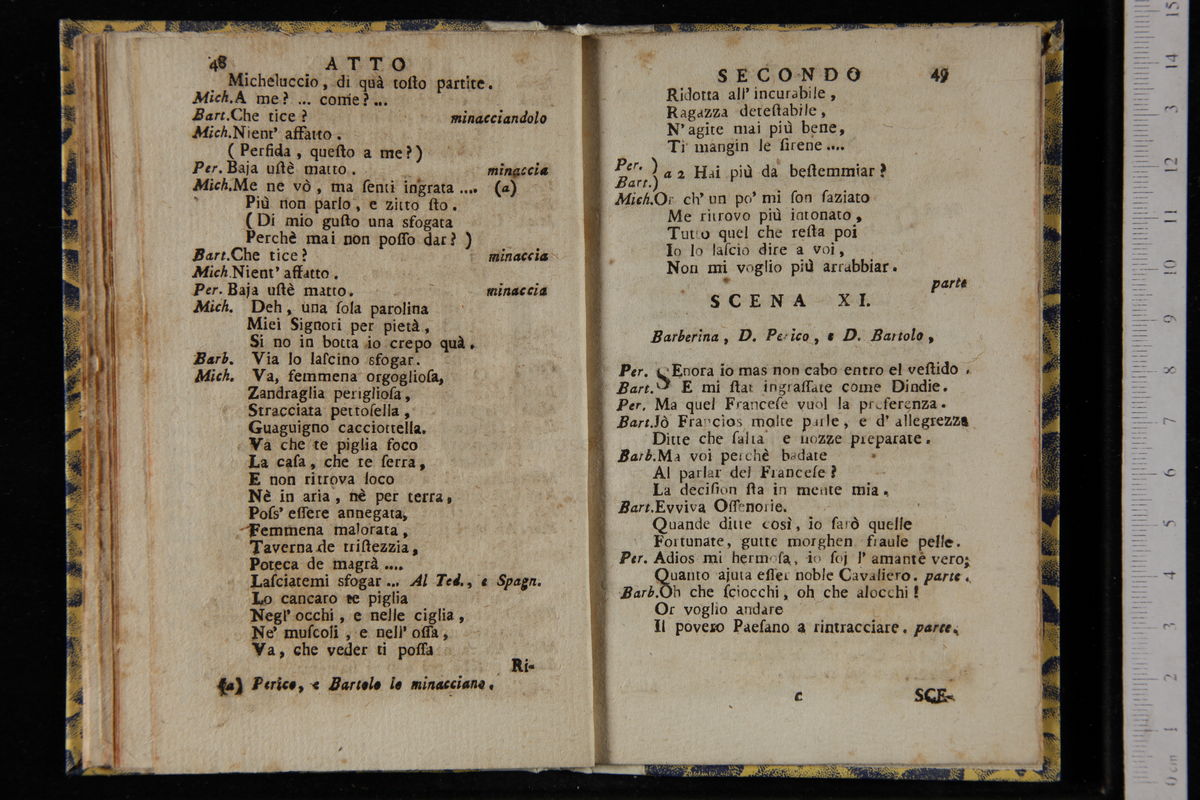 48 ATTO
Micheluccio, di quà tosto partite.
Mich. A me? ... come? ...
Bart. Che tice? minacciandolo
Mich. Nient' affatto.
( Perfida, questo a me? )
Per. Baja ustè matto. minaccia
Mich. Me ne vò, ma senti ingrata .... (a)
Più non parlo, e zitto sto.
( Di mio gusto una sfogata
Perchè mai non posso dar? )
Bart. Che tice? minaccia
Mich. Nient' affatto.
Per. Baja ustè matto. minaccia
Mich. Deh, una sola parolina
Miei Signori per pietà,
Si no in botta io crepo quà.
Barb. Via lo lascino sfogar.
Mich. Va, femmena orgogliosa,
Zandraglia perigliosa,
Stracciata pettosella,
Guaguigno cacciottella.
Va che te piglia foco
La casa, che te serra,
E non ritrova loco
Nè in aria, nè per terra,
Poss' essere annegata,
Femmena malorata,
Taverna de tristezzia,
Poteca de magrà ....
Lasciatemi sfogar ... Al Ted., e Spagn.
Lo cancaro te piglia
Negl' occhi, e nelle ciglia,
Ne' muscoli, e nell' ossa,
Va, che veder ti possa
Ri-
(a) Perico, e Bartolo lo minacciano.
SECONDO 49
Ridotta all' incurabile,
Ragazza detestabile,
N' agite mai più bene,
Ti mangin le sirene ....
Per. )
Bart. ) a 2 Hai più da bestemmiar?
Mich. Or ch' un po' mi son saziato
Me ritrovo più intonato,
Tutto quel che resta poi
Io lo lascio dire a voi,
Non mi voglio più arrabbiar.
parte
SCENA XI.
Barberina, D. Perico, e D. Bartolo,
Per. SEnora io mas non cabo entro el vestido.
Bart. E mi stat ingrassate come Dindie.
Per. Ma quel Francese vuol la preferenza.
Bart. Jò Francios molte parle, e d' allegrezza
Ditte che salta e nozze preparate.
Barb. Ma voi perchè badate
Al parlar del Francese?
La decision sta in mente mia.
Bart. Evviva Offenorie.
Quande ditte così, io farò quelle
Fortunate, gutte morghen fraule pelle.
Per. Adios mi hermosa, io soj l' amantè vero;
Quanto ajuta esser noble Cavaliero. parte.
Barb. Oh che sciocchi, oh che alocchi!
Or voglio andare
Il povero Paesano a rintracciare. parte.
c SCE-